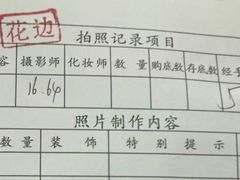 花边
拍照记录项目
容 摄影师 化妆师 数量 购底数 存底数 经手
16.64
照片制作内容
数量 装饰 特别提示